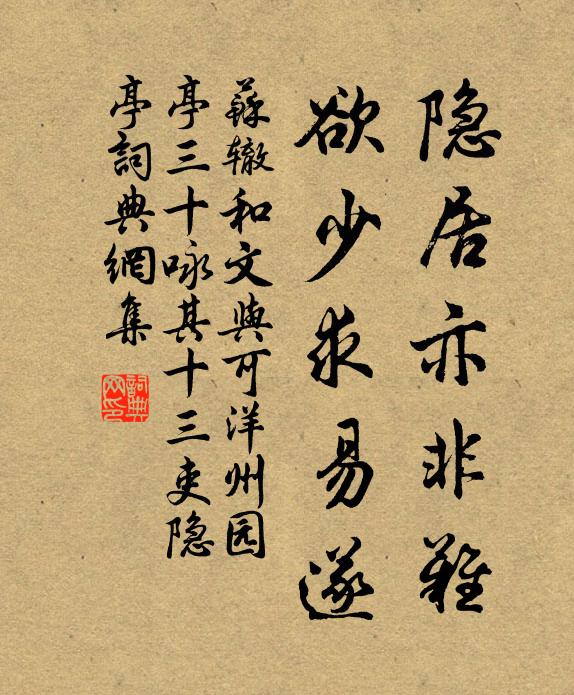 隐居亦非難
欲少求易遂
蘇辙和文與可洋州园
亭三十咏其十三吏隐
亭詞典網集
詞典网印